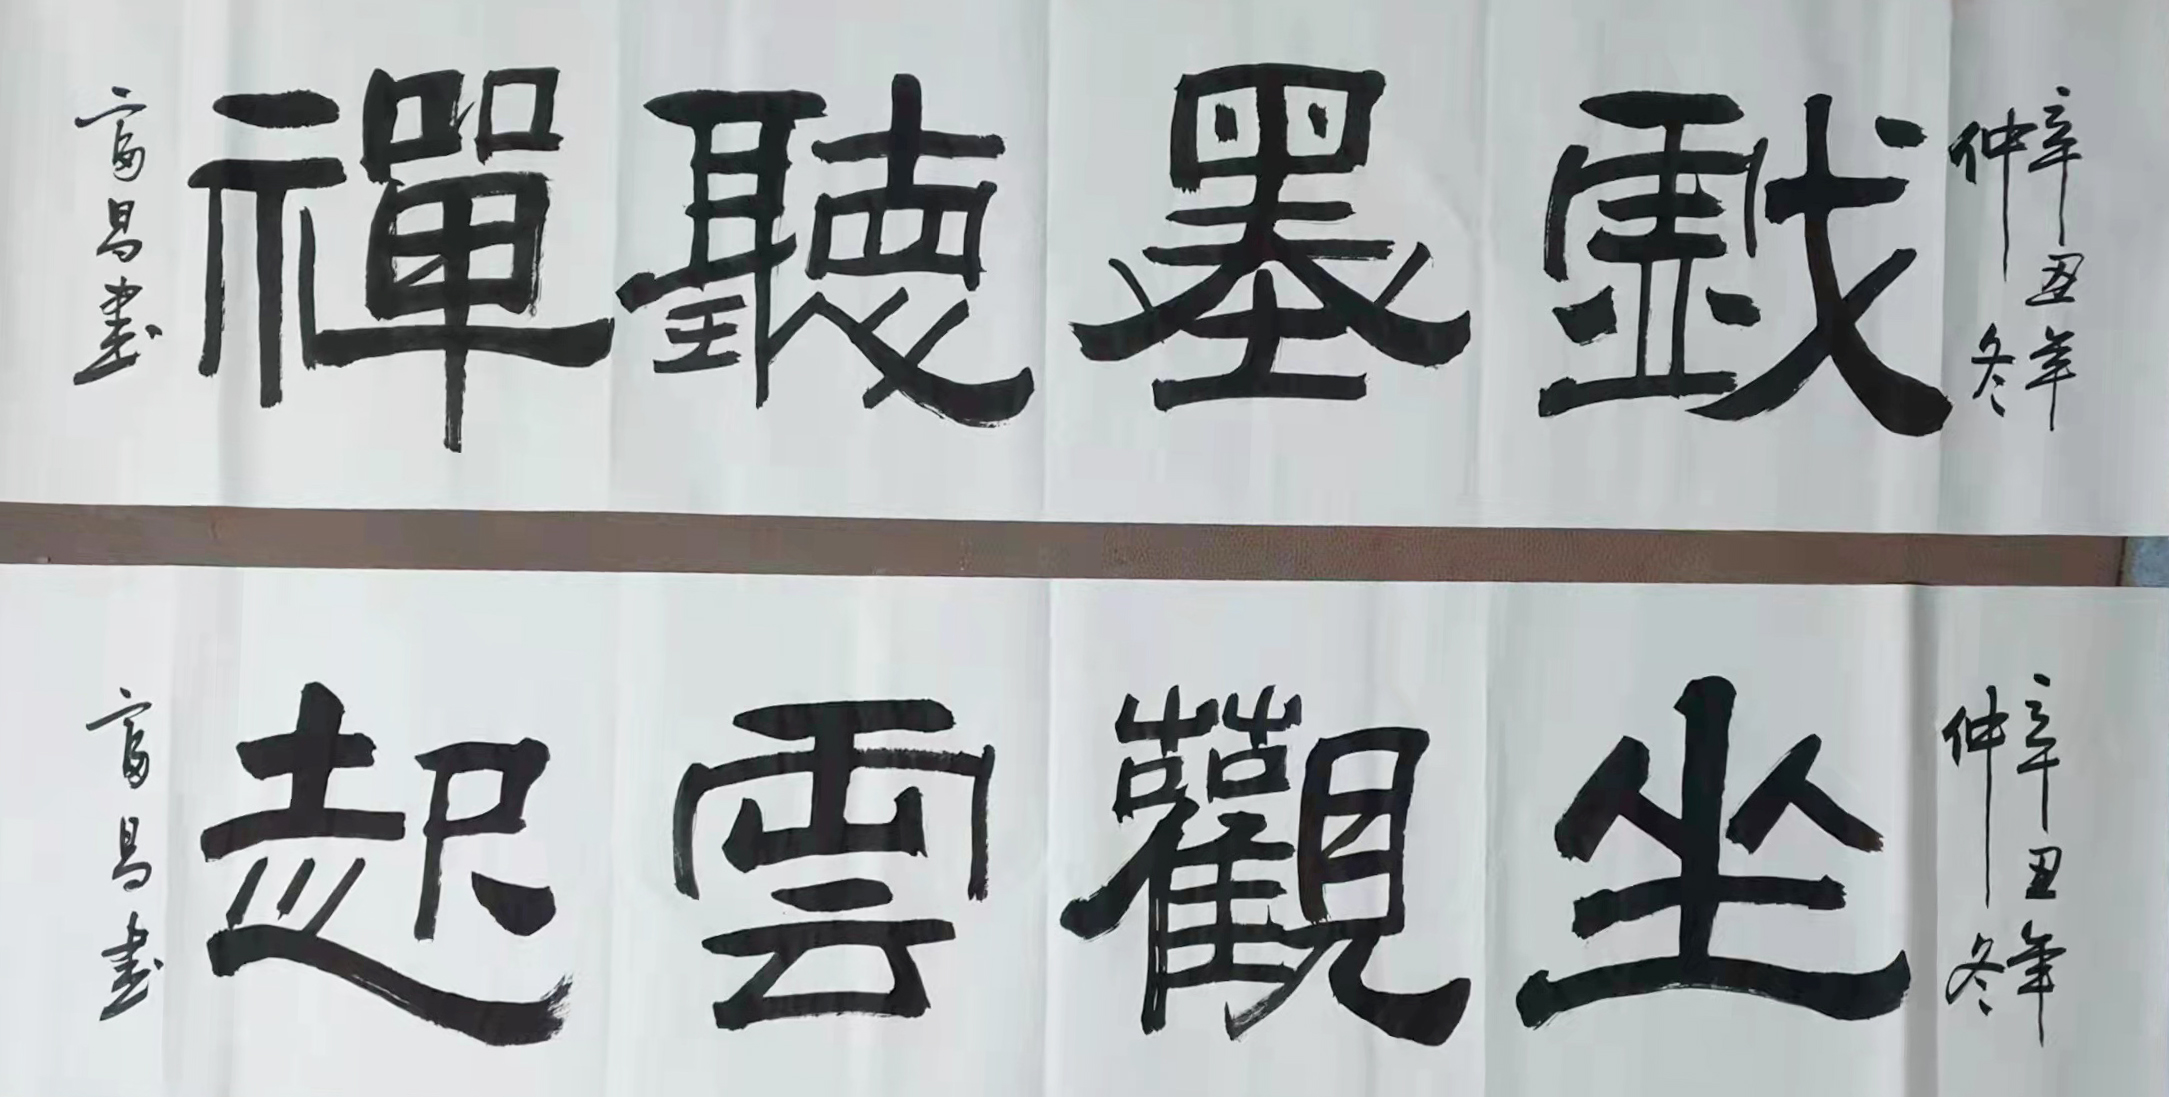 辛丑年
仲冬
戲墨聽禪
富昌書
辛丑年
仲冬
坐觀雲起
富昌書